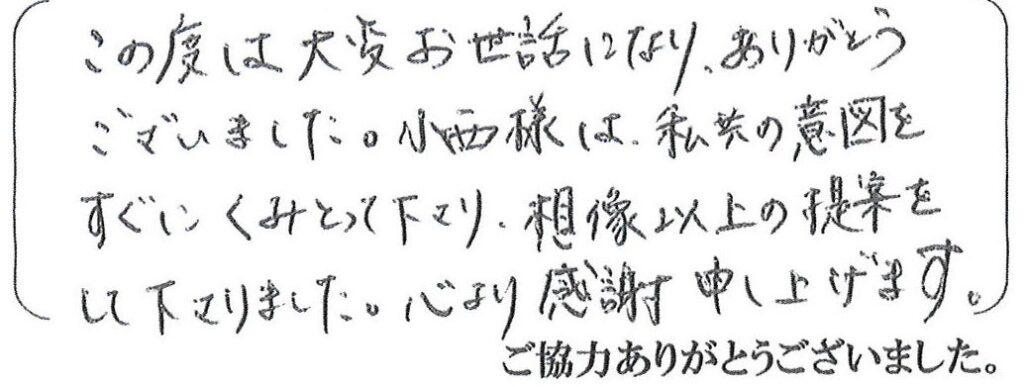 この度は大変お世話になり、ありがとう
ございました。小西様は、私共の意図を
すぐにくみとって下さり、想像以上の提案を
して下さりました。心より感謝申し上げます。
ご協力ありがとうございました。